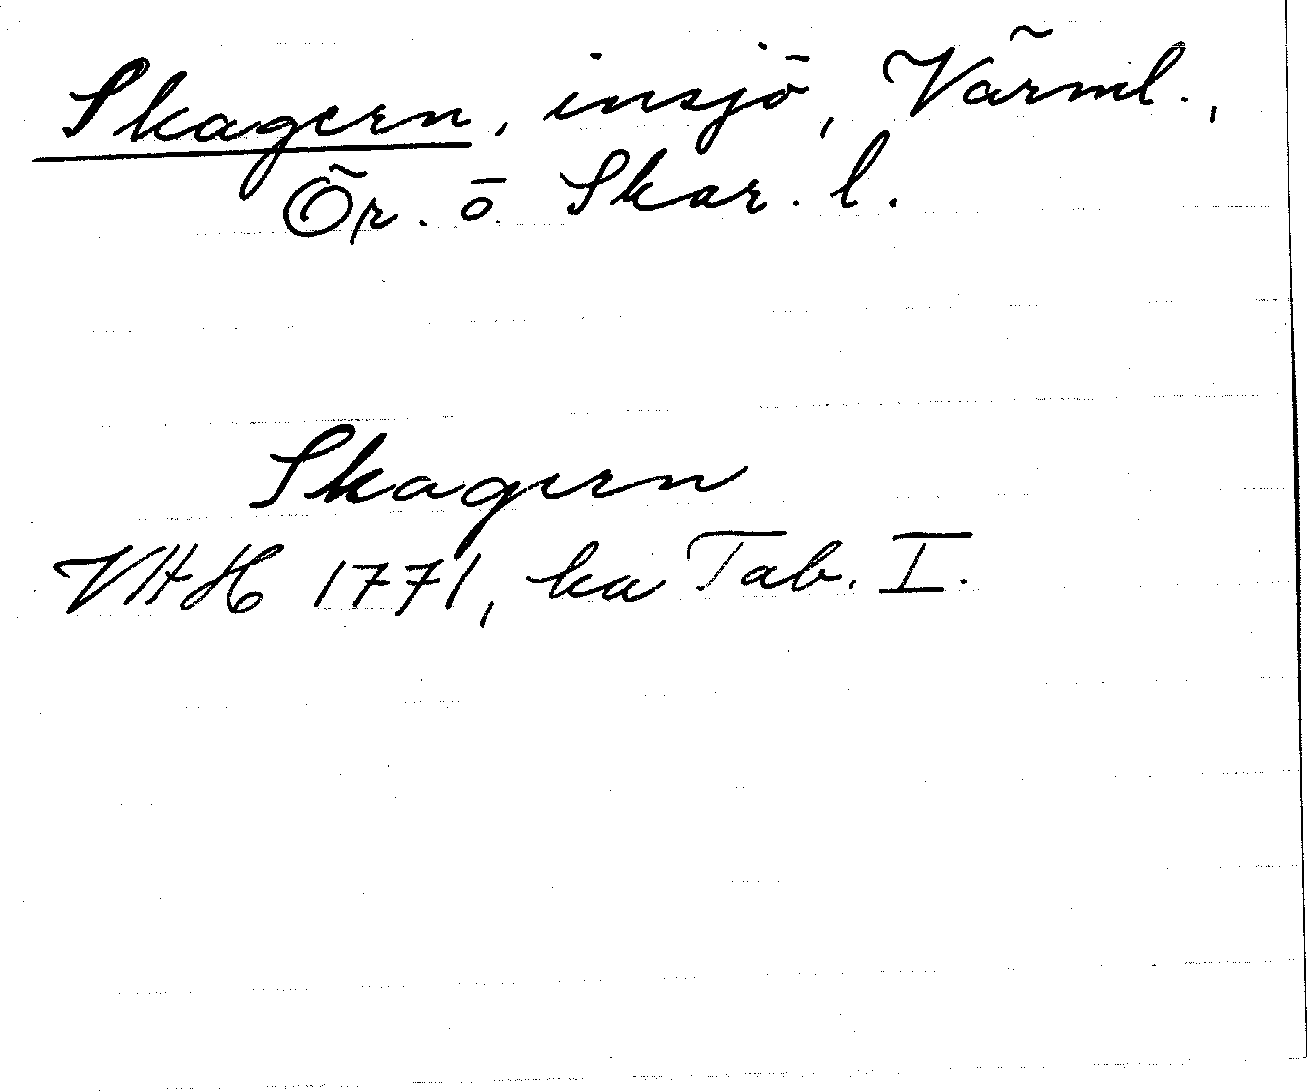 Skagern, insjö, Värml.,
Ör. o Skar. l.
Skagern
VHH 1771, ka Tab. I.